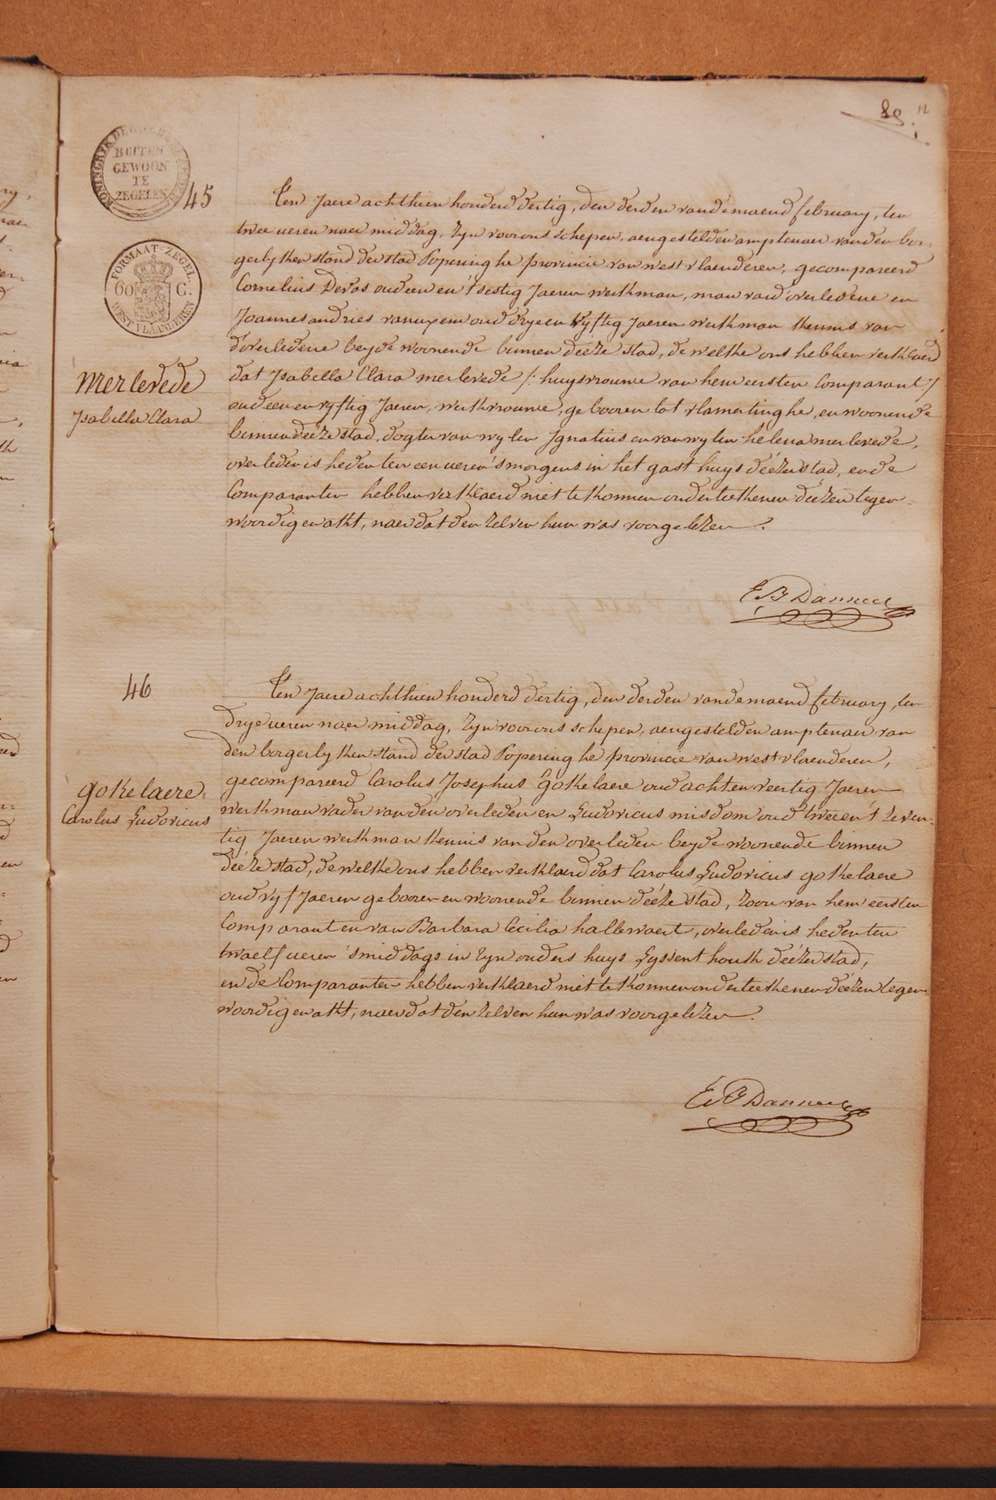 12
KONINGRYK DER
BUITEN
GEWOON
TE
ZEGELEN
FORMAAT-ZEGEL.
60 C.
WEST VLAANDEREN
45
merlevede
Isabella Clara
Ten Jaere achthien honderd dertig, den derden van de maend february, ten
twee ueren naer middag, zyn voor ons schepen, aengestelden amptenaer van den bor-
gerlyken stand der stad Poperinghe provincie van westvlaenderen, gecompareerd
Cornelius Devos oud een en t'sestig Jaeren werkman, man van d'overledene en
Joannes andries vanuxem oud drye en vyftig Jaeren werkman kennis van
d'overledene beyde woonende binnen deeze stad, de welke ons hebben verklaerd
dat Isabella Clara merlevede /: huysvrouwe van hem eersten Comparant /
oud een en vyftig Jaeren, werkvrouwe, gebooren tot vlamertinghe, en woonende
binnen deeze stad, dogter van wylen Ignatius en van wylen helena merlevede,
overleden is heden ten een ueren 'smorgens in het gasthuys deezer stad, en de
Comparanten hebben verklaerd niet te konnen onderteekenen deezen tegen-
woordigen akt, naer dat den zelven hun was voorgelezen.
46
gokelaere
Carolus Ludovicus
Ten Jaere achthien honderd dertig, den derden van de maend february, ten
drye ueren naer middag, zyn voor ons schepen, aengestelden amptenaer van
den borgerlyken stand der stad Poperinghe provincie van westvlaenderen,
gecompareerd Carolus Josephus Gokelaere oud acht en veertig Jaeren
werkman vader van den overleden en Ludovicus misdom oud twee en t'zeven-
tig Jaeren werkman kennis van den overleden beyde woonende binnen
deeze stad, de welke ons hebben verklaerd dat Carolus Ludovicus gokelaere
oud vyf Jaeren gebooren en woonende binnen deeze stad, zoon van hem eersten
Comparant en van Barbara Cecilia hallewaert, overleden is heden ten
twaelf ueren 'smiddags in zyn ouders huys Eyssenthoufk deezer stad,
en de Comparanten hebben verklaerd niet te konnen onderteekenen deezen tegen-
woordigen akt, naer dat den zelven hun was voorgelezen.